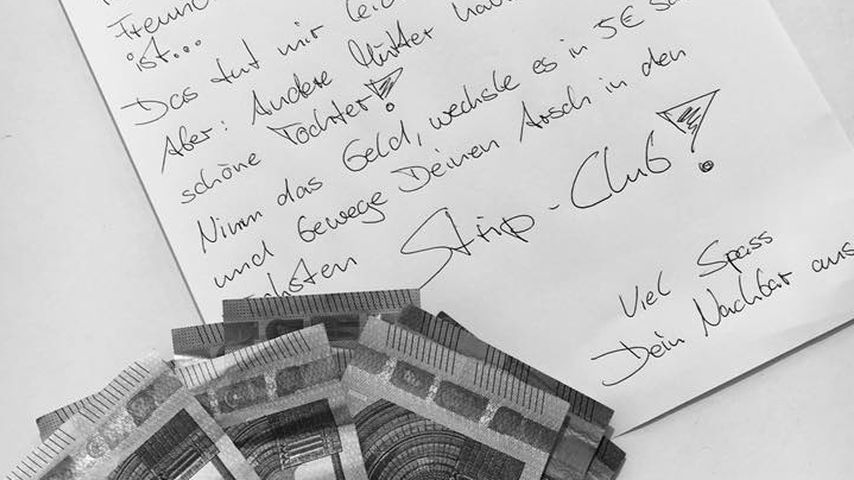 ist...
Das tut mir leid
Aber: Andere Mütter hab
schöne Töchter!
Nimm das Geld, wechsle es in 5€ Sc
und bewege Deinen Arsch in den
chsten Strip-Club!
Viel Spass
Dein Nachbar aus